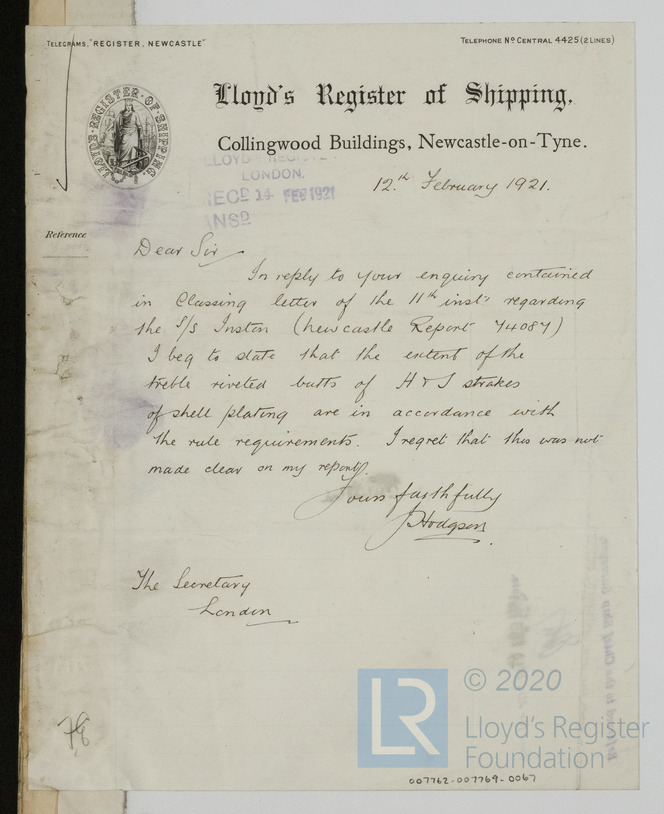 TELEGRAMS, "REGISTER, NEWCASTLE"
TELEPHONE Nº CENTRAL 4425 (2 LINES)
LLOYD'S REGISTER OF SHIPPING.
Lloyd's Register of Shipping,
Collingwood Buildings, Newcastle-on-Tyne.
LLOYD'S REGISTER
LONDON.
RECD 14 FEB 1921
ANSD
12th February 1921.
Reference
Dear Sir
In reply to your enquiry contained
in Classing letter of the 11th inst: regarding
the S/S Inston (Newcastle Report 74087)
I beg to state that the extent of the
treble riveted butts of H & J strakes
of shell plating are in accordance with
the rule requirements. I regret that this was not
made clear on my report.
Yours faithfully
J Hodgson
The Secretary
London
78
LR
© 2020
Lloyd's Register
Foundation
007762-007769-0067